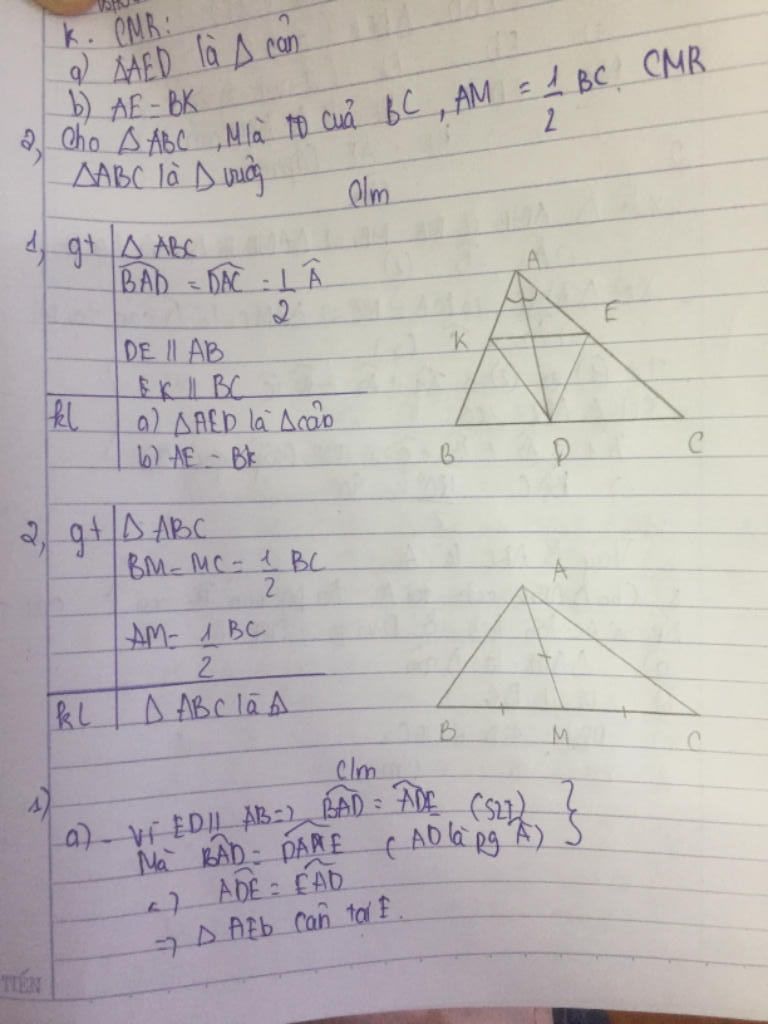 K. CMR:
a) ΔAED là Δ cân
b) AE = BK
2, Cho ΔABC, M là TĐ của BC, AM = 1/2 BC. CMR
ΔABC là Δ vuông
C/m
1, gt ΔABC
BAD^ = DAC^ = 1/2 Â
DE // AB
EK // BC
kl a) ΔAED là Δ cân
b) AE = BK
A
E
K
B D C
2, gt ΔABC
BM = MC = 1/2 BC
AM = 1/2 BC
kl ΔABC là Δ
A
B M C
C/m
1)
a) - Vì ED // AB => BAD^ = ADE^ (SLT) }
Mà BAD^ = DAE^ (AD là pg Â)
=> ADE^ = EAD^
=> Δ AED cân tại E.
TIẾN